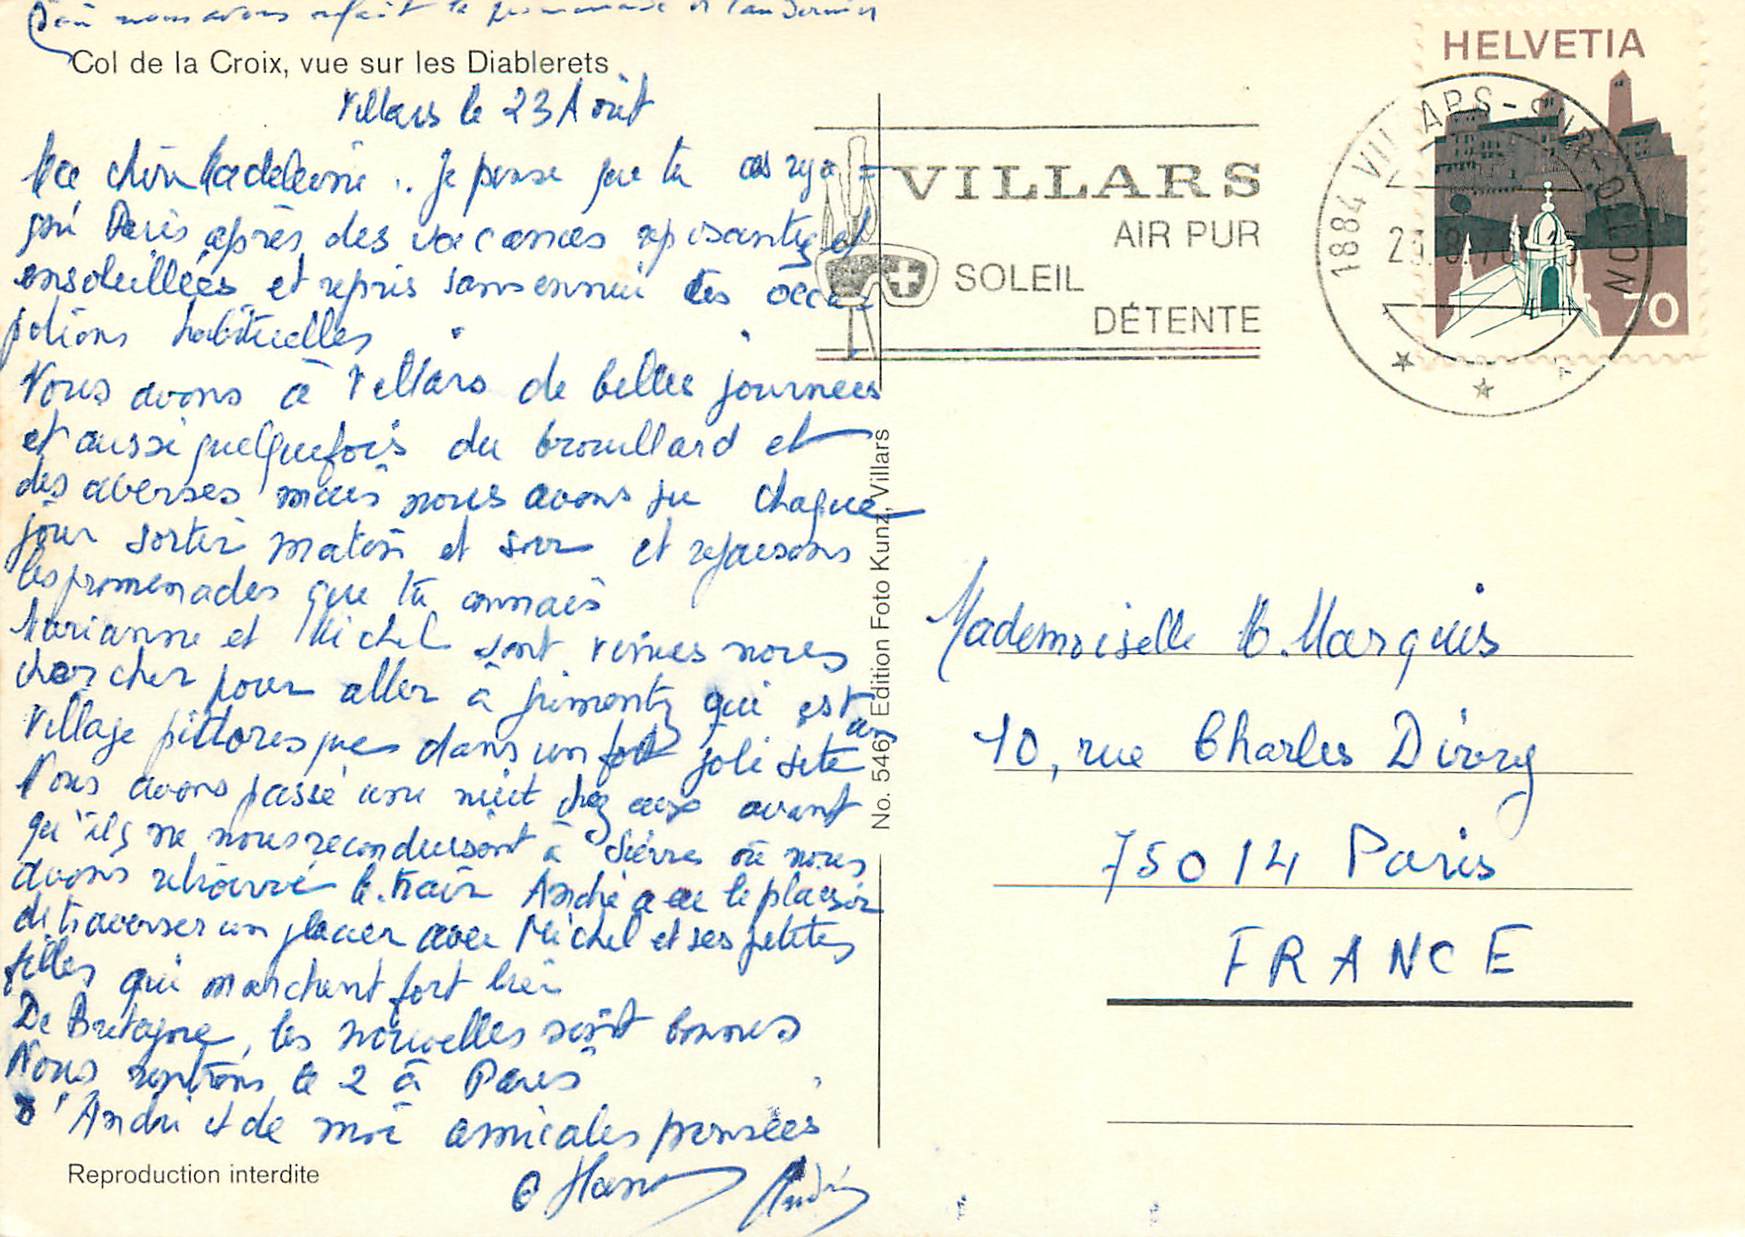 D'où nous avons refait la promenade de l'an dernier
Col de la Croix, vue sur les Diablerets
Villars le 23 Août
Ma chère Madeleine .. Je pense que tu as rega =
gné Paris après des vacances reposantes et
ensoleillées et repris sans ennui tes occu-
pations habituelles.
Nous avons à Villars de belles journées
et aussi quelquefois du brouillard et
des averses mais nous avons pu chaque
jour sortir matin et soir et refaisons
les promenades que tu connais
Marianne et Michel sont venus nous
chercher pour aller à Grimentz qui est un
village pittoresque dans un fort joli site
Nous avons passé une nuit chez eux avant
qu'ils ne nous reconduisent à Sierre où nous
avons retrouvé le train André a eu le plaisir
de traverser un glacier avec Michel et ses petites
filles qui marchent fort bien
De Bretagne, les nouvelles sont bonnes
Nous rentrons le 2 à Paris
D'André et de moi amicales pensées
André
Reproduction interdite
No. 546 Edition Foto Kunz, Villars
VILLARS
AIR PUR
SOLEIL
DÉTENTE
1884 VILLARS-SUR-OLLON
HELVETIA
70
Mademoiselle M. Marquis
10, rue Charles Divry
75014 Paris
FRANCE